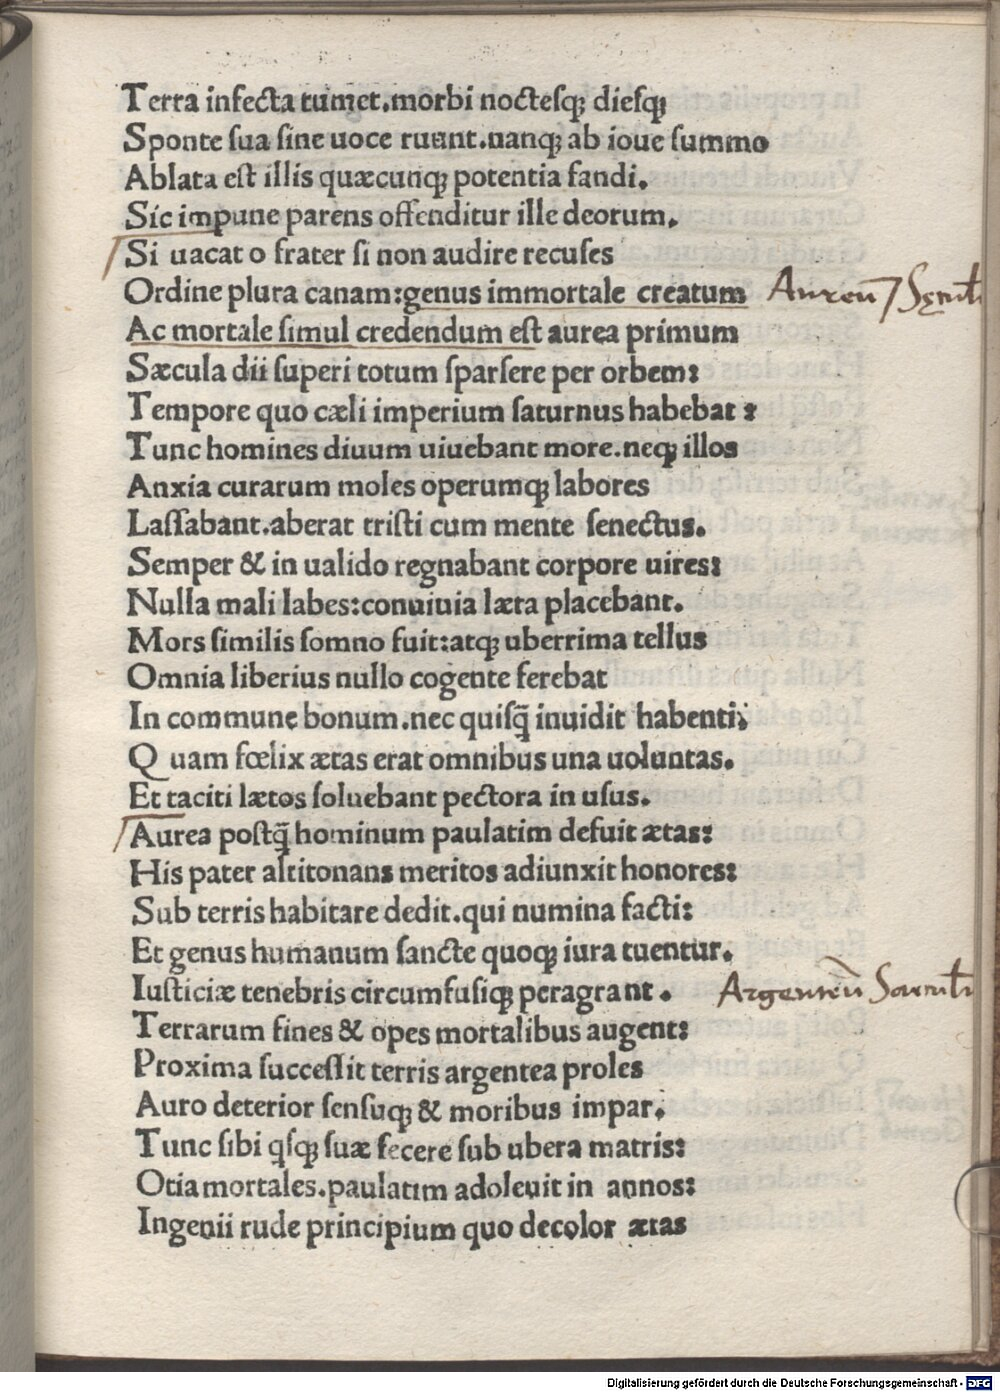 Terra infecta tumet.morbi noctesqꝫ diesqꝫ
Sponte sua sine uoce ruunt.nanqꝫ ab ioue summo
Ablata est illis quæcunqꝫ potentia fandi.
Sic impune parens offenditur ille deorum.
Si uacat o frater si non audire recuses
Ordine plura canam:genus immortale creatum Aureū
Ac mortale simul credendum est aurea primum
Sæcula dii superi totum sparsere per orbem:
Tempore quo cæli imperium saturnus habebat :
Tunc homines diuum uiuebant more.neqꝫ illos
Anxia curarum moles operumqꝫ labores
Lassabant.aberat tristi cum mente senectus.
Semper & in ualido regnabant corpore uires:
Nulla mali labes:conuiuia læta placebant.
Mors similis somno fuit:atqꝫ uberrima tellus
Omnia liberius nullo cogente ferebat
In commune bonum.nec quisq̄ inuidit habenti;
Q uam fœlix ætas erat omnibus una uoluntas.
Et taciti lætos soluebant pectora in usus.
Aurea postq̄ hominum paulatim defuit ætas:
His pater altitonans meritos adiunxit honores:
Sub terris habitare dedit.qui numina facti:
Et genus humanum sancte quoqꝫ iura tuentur.
Iusticiæ tenebris circumfusiqꝫ peragrant . Argenteū
Terrarum fines & opes mortalibus augent:
Proxima successit terris argentea proles
Auro deterior sensuqꝫ & moribus impar.
Tunc sibi qsqꝫ suæ fecere sub ubera matris:
Otia mortales.paulatim adoleuit in annos:
Ingenii rude principium quo decolor ætas
Digitalisierung gefördert durch die Deutsche Forschungsgemeinschaft - DFG